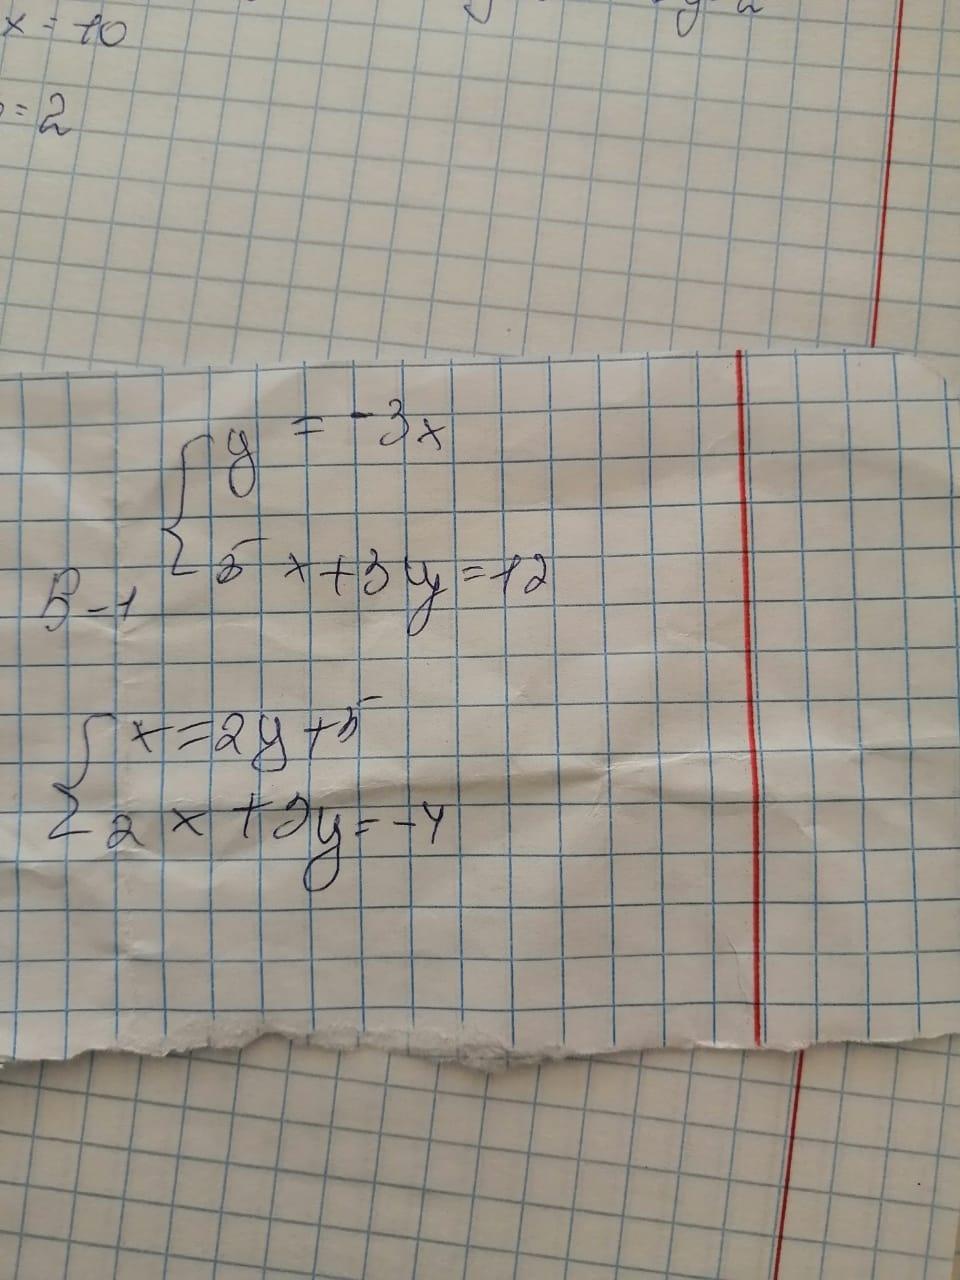 x = 10
= 2
y = -3x
5x + 3y = 12
B-1
x = 2y + 5
2x + 3y = -4